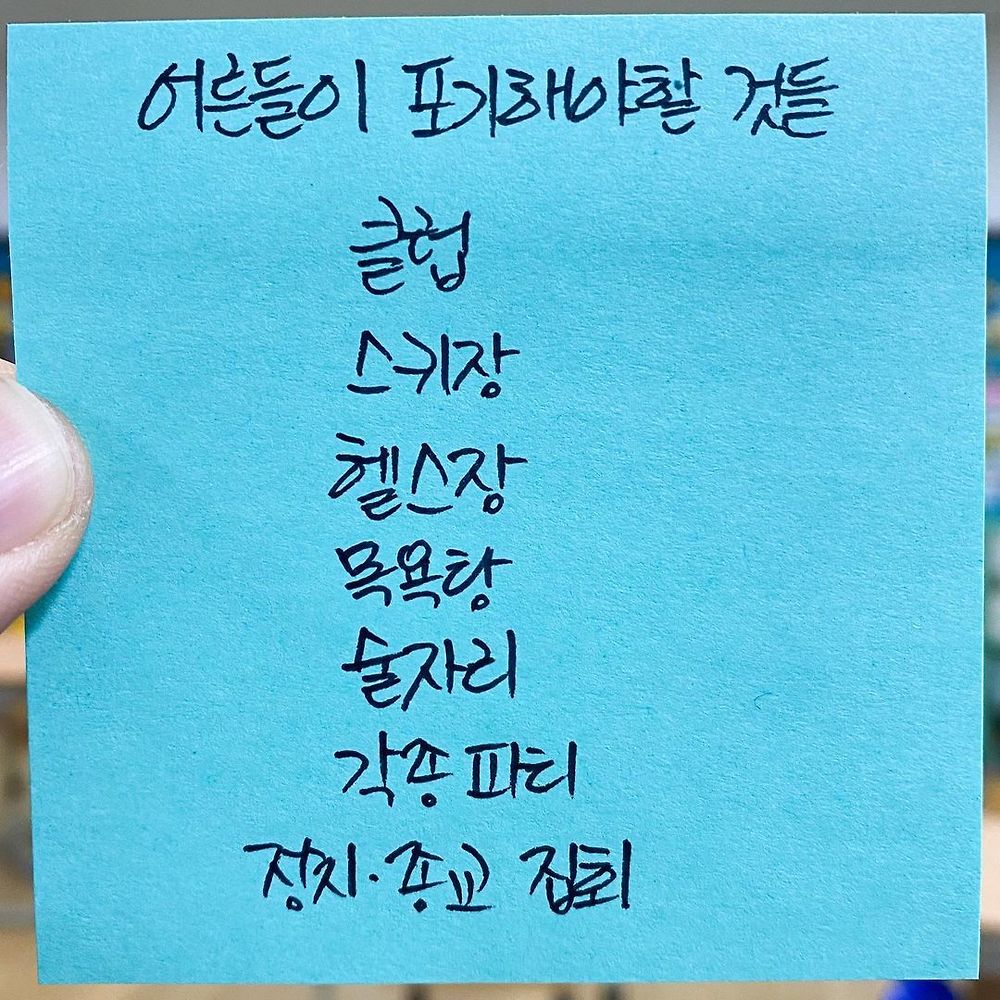 어른들이 포기해야할 것들
클럽
스키장
헬스장
목욕탕
술자리
각종 파티
정치·종교 집회